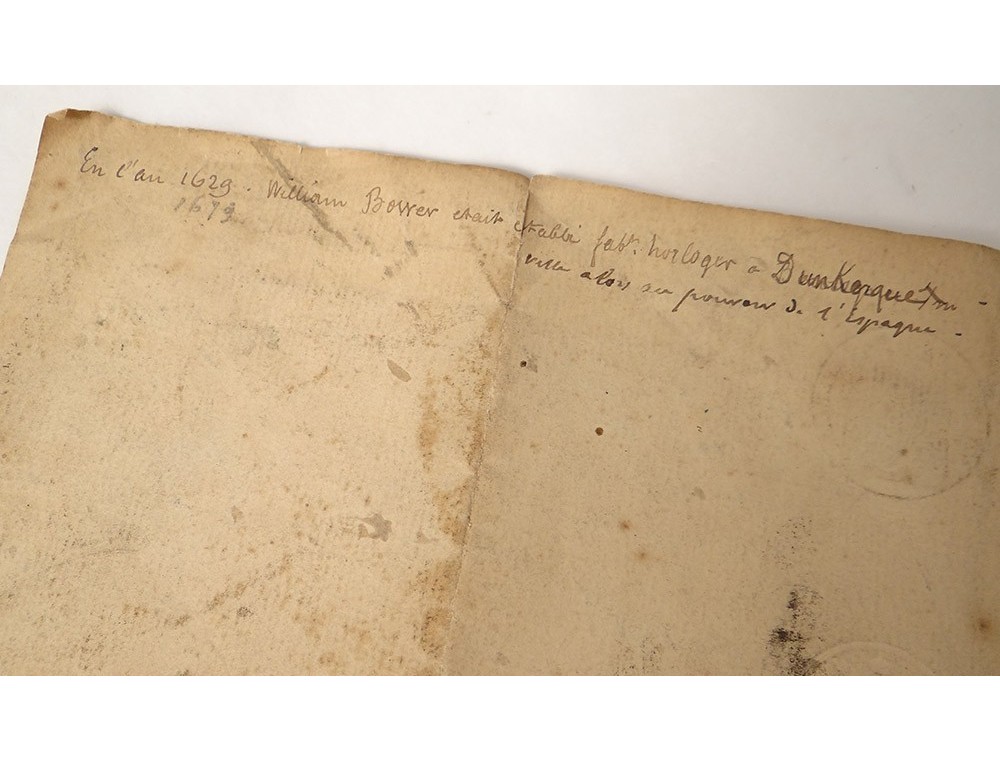 En l'an 1629. William Bower etait etabli fabt. horloger a Dunkerque
1679
ville alors au pouvoir de l'Espagne -